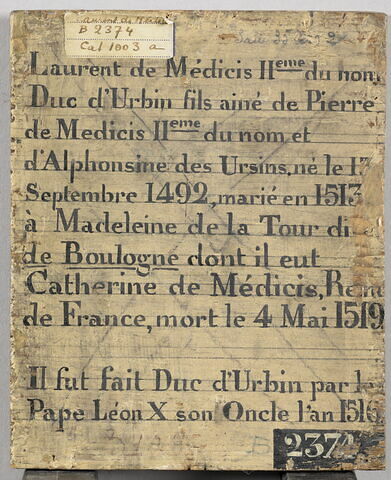 B 2374
Cal 1003 a
Laurent de Médicis IIeme du nom,
Duc d'Urbin fils ainé de Pierre
de Medicis IIeme du nom, et
d'Alphonsine des Ursins, né le 13
Septembre 1492, marié en 1513
à Madeleine de la Tour di
de Boulogne dont il eut
Catherine de Médicis, Rein
de France, mort le 4 Mai 1519
Il fut fait Duc d'Urbin par le
Pape Léon X son Oncle l'an 1516
2374